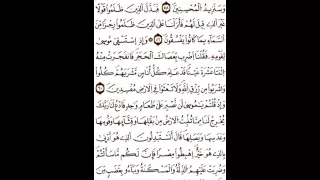 وَسَنَزِيدُ ٱلْمُحْسِنِينَ فَبَدَّلَ ٱلَّذِينَ ظَلَمُوا۟ قَوْلًا
غَيْرَ ٱلَّذِى قِيلَ لَهُمْ فَأَنزَلْنَا عَلَى ٱلَّذِينَ ظَلَمُوا۟ رِجْزًا مِّنَ
ٱلسَّمَآءِ بِمَا كَانُوا۟ يَفْسُقُونَ وَإِذِ ٱسْتَسْقَىٰ مُوسَىٰ
لِقَوْمِهِۦ فَقُلْنَا ٱضْرِب بِّعَصَاكَ ٱلْحَجَرَ فَٱنفَجَرَتْ مِنْهُ
ٱثْنَتَا عَشْرَةَ عَيْنًا قَدْ عَلِمَ كُلُّ أُنَاسٍ مَّشْرَبَهُمْ كُلُوا۟
وَٱشْرَبُوا۟ مِن رِّزْقِ ٱللَّهِ وَلَا تَعْثَوْا۟ فِى ٱلْأَرْضِ مُفْسِدِينَ
وَإِذْ قُلْتُمْ يَـٰمُوسَىٰ لَن نَّصْبِرَ عَلَىٰ طَعَامٍ وَٰحِدٍ فَٱدْعُ لَنَا رَبَّكَ
يُخْرِجْ لَنَا مِمَّا تُنۢبِتُ ٱلْأَرْضُ مِنۢ بَقْلِهَا وَقِثَّآئِهَا وَفُومِهَا
وَعَدَسِهَا وَبَصَلِهَا قَالَ أَتَسْتَبْدِلُونَ ٱلَّذِى هُوَ أَدْنَىٰ
بِٱلَّذِى هُوَ خَيْرٌ ٱهْبِطُوا۟ مِصْرًا فَإِنَّ لَكُم مَّا سَأَلْتُمْ
وَضُرِبَتْ عَلَيْهِمُ ٱلذِّلَّةُ وَٱلْمَسْكَنَةُ وَبَآءُو بِغَضَبٍ مِّنَ